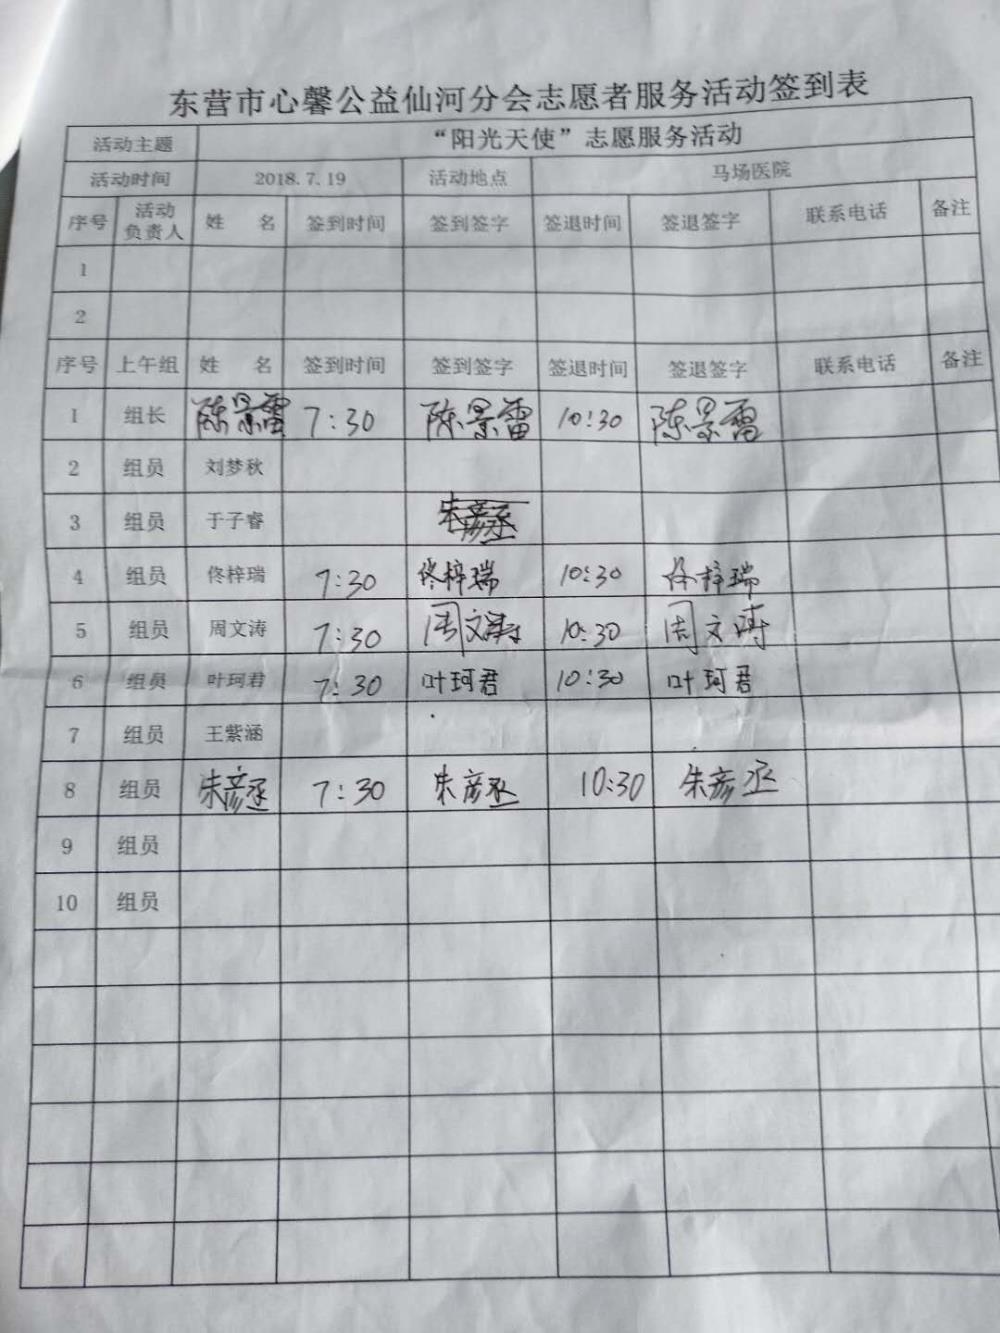 东营市心馨公益仙河分会志愿者服务活动签到表
活动主题 “阳光天使”志愿服务活动
活动时间 2018.7.19 活动地点 马场医院
序号 活动负责人 姓 名 签到时间 签到签字 签退时间 签退签字 联系电话 备注
1
2
序号 上午组 姓 名 签到时间 签到签字 签退时间 签退签字 联系电话 备注
1 组长 陈景雷 7:30 陈景雷 10:30 陈景雷
2 组员 刘梦秋
3 组员 于子睿 朱彦丞
4 组员 佟梓瑞 7:30 佟梓瑞 10:30 佟梓瑞
5 组员 周文涛 7:30 周文涛 10:30 周文涛
6 组员 叶珂君 7:30 叶珂君 10:30 叶珂君
7 组员 王紫涵
8 组员 朱彦丞 7:30 朱彦丞 10:30 朱彦丞
9 组员
10 组员